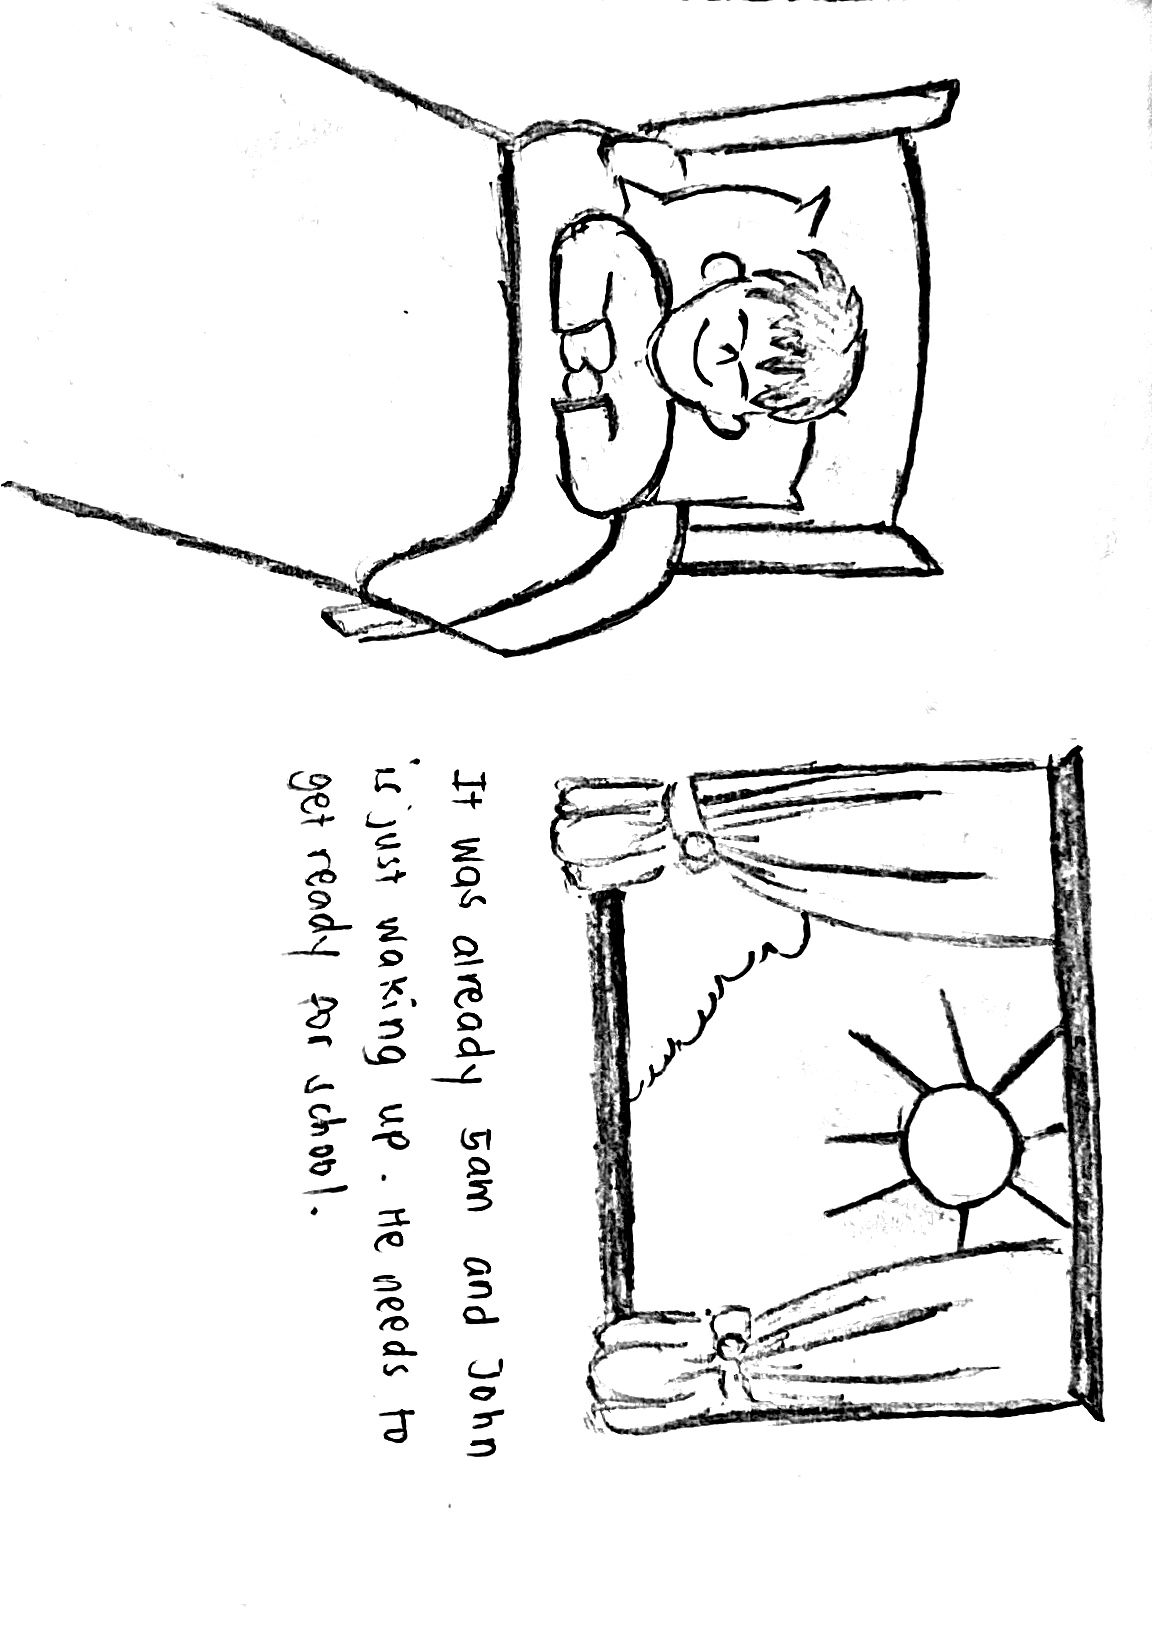 It was already 5am and John
is just waking up. He needs to
get ready for school.